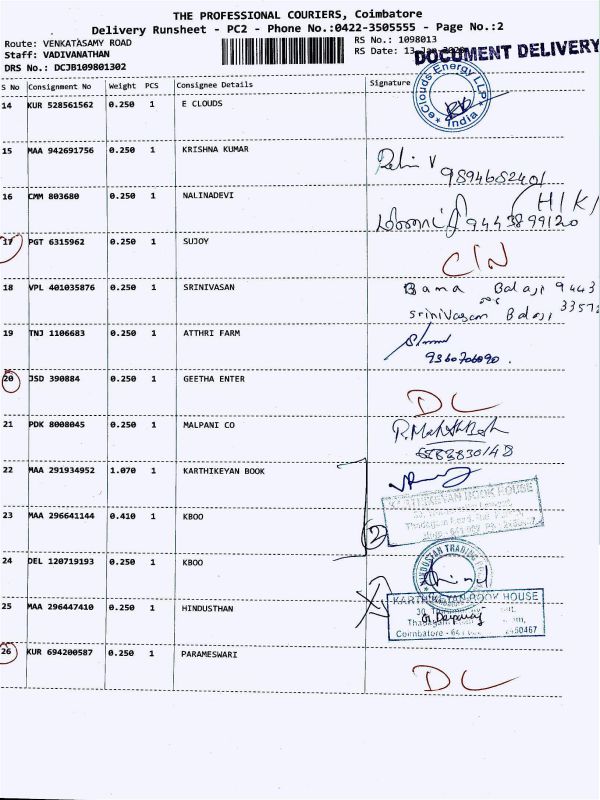 THE PROFESSIONAL COURIERS, Coimbatore
Delivery Runsheet - PC2 - Phone No.:0422-3505555 - Page No.:2
Route: VENKATASAMY ROAD
Staff: VADIVANATHAN
DRS No.: DCJB109801302
RS No.: 1098013
RS Date: 13
DOCUMENT DELIVERY
S No Consignment No Weight PCS Consignee Details Signature
14 KUR 528561562 0.250 1 E CLOUDS
eClouds Energy LLP
India
15 MAA 942691756 0.250 1 KRISHNA KUMAR
9894682401
16 CMM 803680 0.250 1 NALINADEVI
9443899120
17 PGT 6315962 0.250 1 SUJOY
C/N
18 VPL 401035876 0.250 1 SRINIVASAN
Bama Balaji 9443
srinivasan Balaji
19 TNJ 1106683 0.250 1 ATTHRI FARM
9360706090.
20 JSD 390884 0.250 1 GEETHA ENTER
DL
21 PDK 8008045 0.250 1 MALPANI CO
22 MAA 291934952 1.070 1 KARTHIKEYAN BOOK
KARTHIKEYAN BOOK HOUSE
23 MAA 296641144 0.410 1 KBOO
2
24 DEL 120719193 0.250 1 KBOO
25 MAA 296447410 0.250 1 HINDUSTHAN
KARTHIKEYAN BOOK HOUSE
26 KUR 694200587 0.250 1 PARAMESWARI
DL